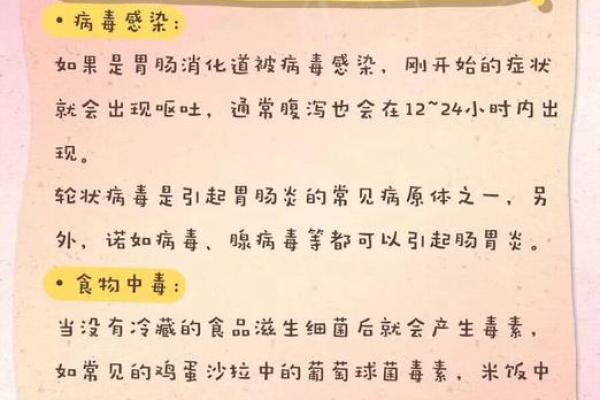 • 病毒感染：
如果是胃肠消化道被病毒感染，刚开始的症状
就会出现呕吐，通常腹泻也会在12~24小时内出
现。
轮状病毒是引起胃肠炎的常见病原体之一，另
外，诺如病毒、腺病毒等都可以引起肠胃炎。
• 食物中毒：
当没有冷藏的食品滋生细菌后就会产生毒素，
如常见的鸡蛋沙拉中的葡萄球菌毒素，米饭中